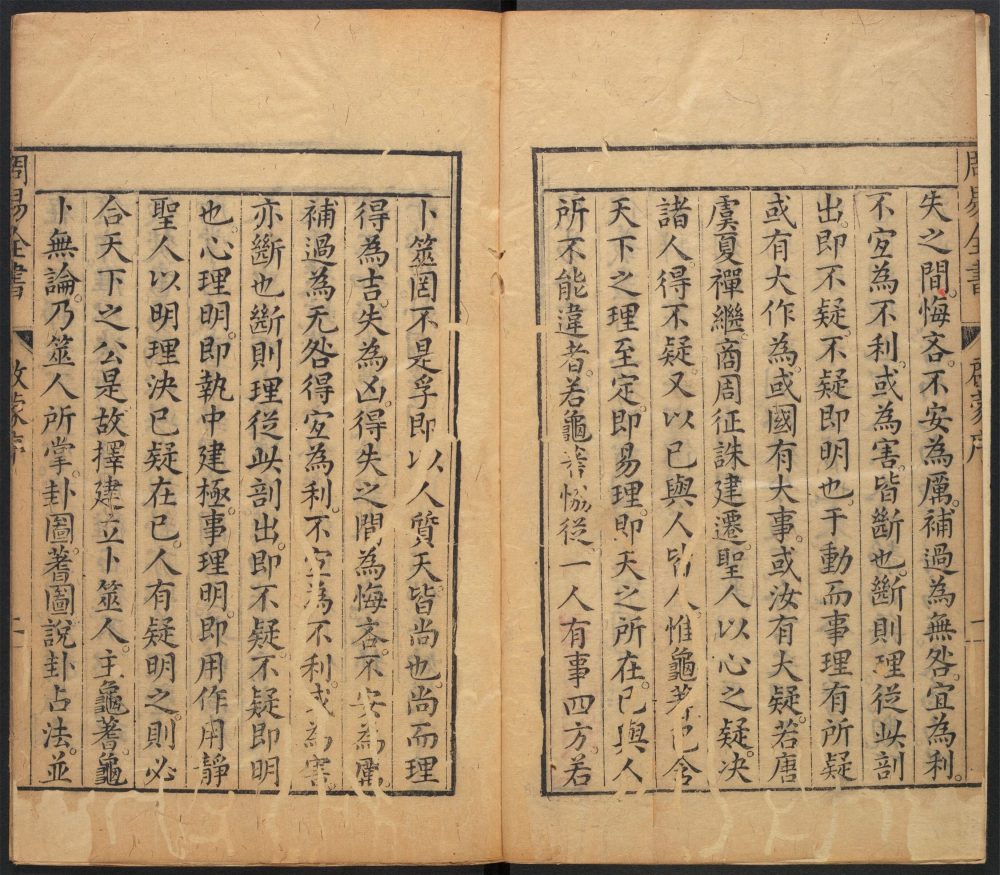 周易全書
啟蒙序
失之間。悔吝。不安為厲。補過為無咎。宜為利。
不宜為不利。或為害。皆斷也。斷則理從此剖
出。即不疑。不疑即明也。于動而事理有所疑
或有大作為。或國有大事。或汝有大疑。若唐
虞夏禪繼。商周征誅建遷。聖人以心之疑。决
諸人。得不疑。又以已與人皆人。惟龜蓍已含
天下之理。至定即易理。即天之所在。已與人
所不能違者。若龜蓍恊從。一人有事四方。若
卜筮罔不是孚。即以人質天。皆尚也。尚而理
得為吉。失為凶。得失之間為悔吝。不安為厲。
補過為无咎。得宜為利。不宜為不利。或為害。
亦斷也。斷則理從此剖出。即不疑。不疑即明
也。心理明。即執中建極。事理明。即用作用靜
聖人以明理决已疑在已。人有疑明之。則必
合天下之公。是故擇建立卜筮人。主龜蓍。龜
卜無論。乃筮人所掌。卦圖。蓍圖。說卦占法。並
周易全書
啟蒙序
二